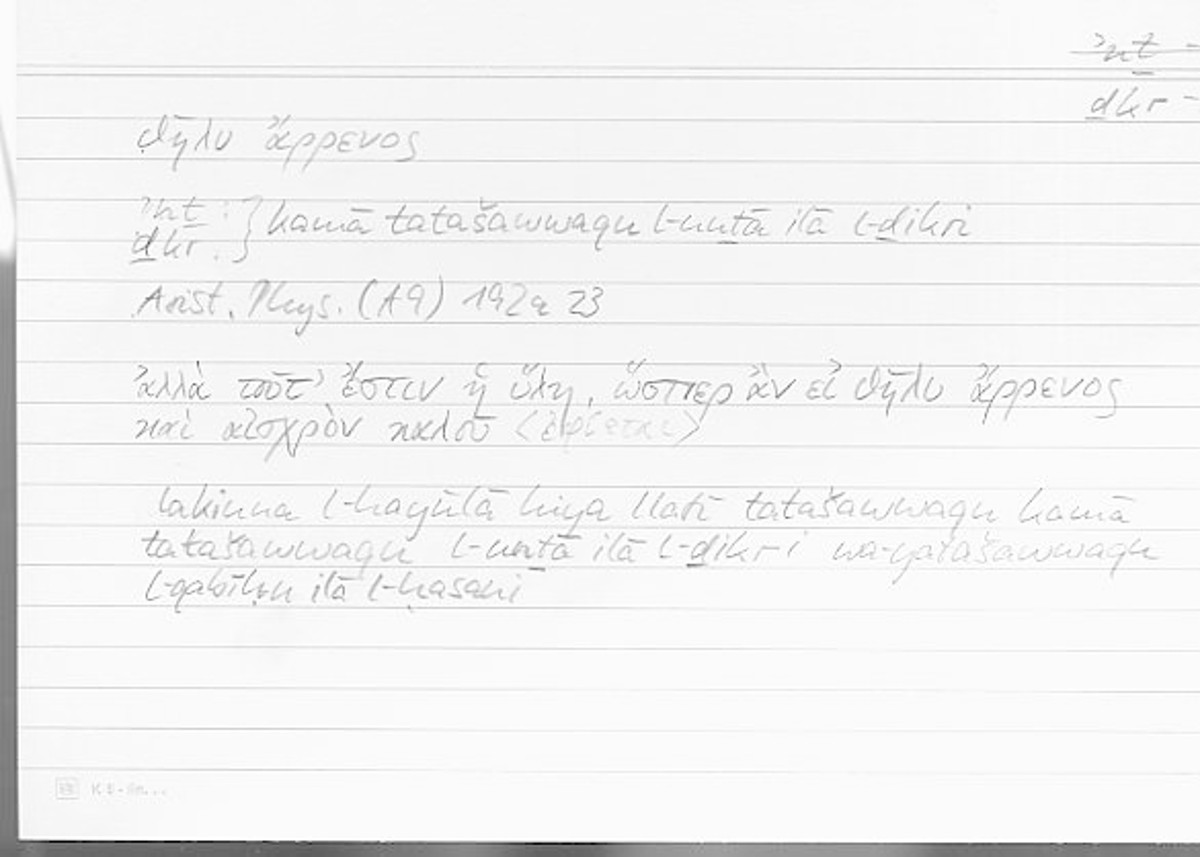 ʾnṯ -
ḏkr -
θῆλυ ἄρρενος
ʾnṯ :
ḏkr . } kamā tatašawwaqu l-unṯā ilā l-ḏikri
Arist. Phys. (A9) 192a 23
ἀλλὰ τοῦτ' ἔστιν ἡ ὕλη, ὥσπερ ἂν εἰ θῆλυ ἄρρενος
καὶ αἰσχρὸν καλοῦ <ἐφίεται>
lakinna l-hayūlā hiya llatī tatašawwaqu kamā
tatašawwaqu l-unṯā ilā l-ḏikri wa-yatašawwaqu
l-qabīḥu ilā l-ḥasani